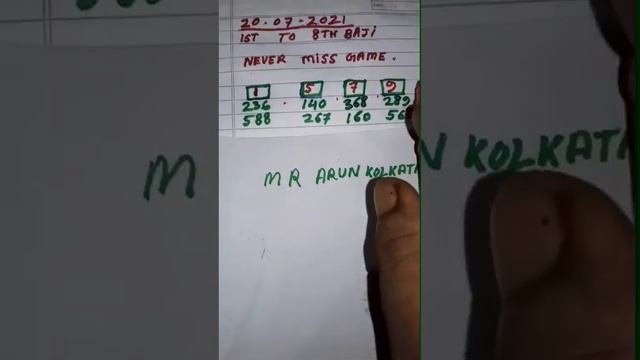 20.07.2021
1ST TO 8TH BAJI
NEVER MISS GAME.
1 5 7 9
236 140 368 289
588 267 160 56
MR ARUN KOLKAT